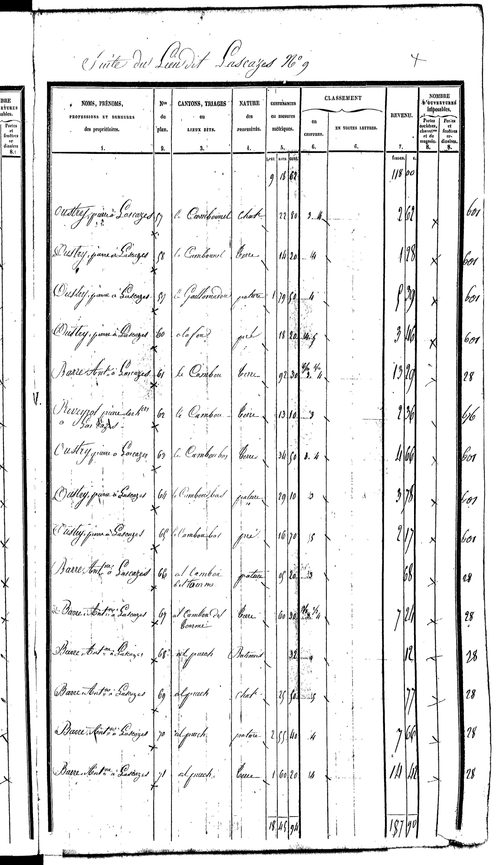 Suite du Lieu dit Lascazes N° 9
NOMS, PRÉNOMS,
PROFESSIONS ET DEMEURES
des propriétaires.
1.
Nos
du
plan.
2.
CANTONS, TRIAGES
ou
LIEUX DITS.
3.
NATURE
des
propriétés.
4.
CONTENANCES
en mesures
métriques.
5.
CLASSEMENT
en
CHIFFRES.
6.
EN TOUTES LETTRES.
6.
REVENU.
7.
NOMBRE
D'OUVERTURES
imposables.
Portes
cochères,
charret.
et de
magasin.
8.
Portes
et
fenêtres
ordinaires.
8.
9 18 62 118 00
Oustry, pierre à Lascazes 57 le Cambournel chat. 22 80 3. 4 2 62 x 601
Oustry, pierre à Lascazes 58 le Cambournel terre 14 20 4 1 28 x 601
Oustry, pierre à Lascazes 59 pature 1 79 50 4 5 39 x 601
Oustry, pierre à Lascazes 60 a la fon pré 18 20 4.5 3 46 x 601
Barre Ant. à Lascazes 61 le Cambou terre 92 30 13 29 x 28
pierre les hers
à Lascazes 62 le Cambou terre 13 10 3 2 36 x
Oustry pierre à Lascazes 63 le Camboubos terre 34 50 3. 4 4 66 x 601
Oustry, pierre à Lascazes 64 le Camboubos pature 29 10 3 3 78 x 601
Oustry, pierre à Lascazes 65 le Camboubos pré 16 70 5 2 17 x 601
Barre Antne à Lascazes 66 al Cambou pature 05 20 3 68 x 28
Barre Antne à Lascazes 67 al Cambou del terre 60 30 7 24 x 28
Barre Antne à Lascazes 68 al puech Batiment 32 12 x 28
Barre Antne à Lascazes 69 al puech chat. 25 50 5 77 x 28
Barre Antne à Lascazes 70 al puech pature 2 55 40 4 7 66 x 28
Barre Antne à Lascazes 71 al puech terre 1 60 20 4 14 42 x 28
18 45 94 187 90